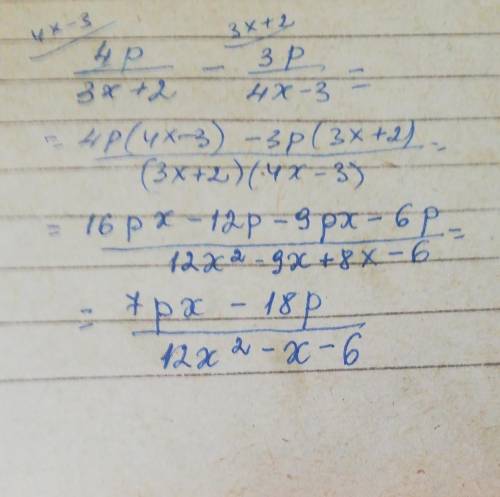 4x-3 3x+2
4p - 3p
3x+2 4x-3 =
= 4p(4x-3) -3p(3x+2) =
(3x+2)(4x-3)
= 16px -12p -9px -6p =
12x² -9x +8x -6
= 7px - 18p
12x² - x - 6